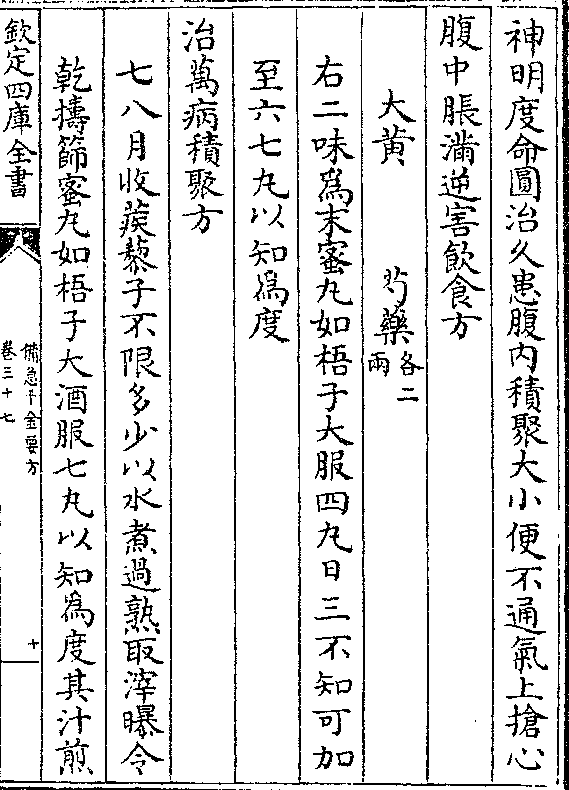 神明度命圓治久患腹内積聚大小便不通氣上搶心
腹中脹滿逆害飲食方
大黄　芍藥各二兩
右二味為末蜜丸如梧子大服四丸日三不知可加
至六七丸以知為度
治萬病積聚方
七八月收蒺藜子不限多少以水煮過熟取滓曝令
乾擣篩蜜丸如梧子大酒服七丸以知為度其汁煎
欽定四庫全書
備急千金要方
卷三十七
十